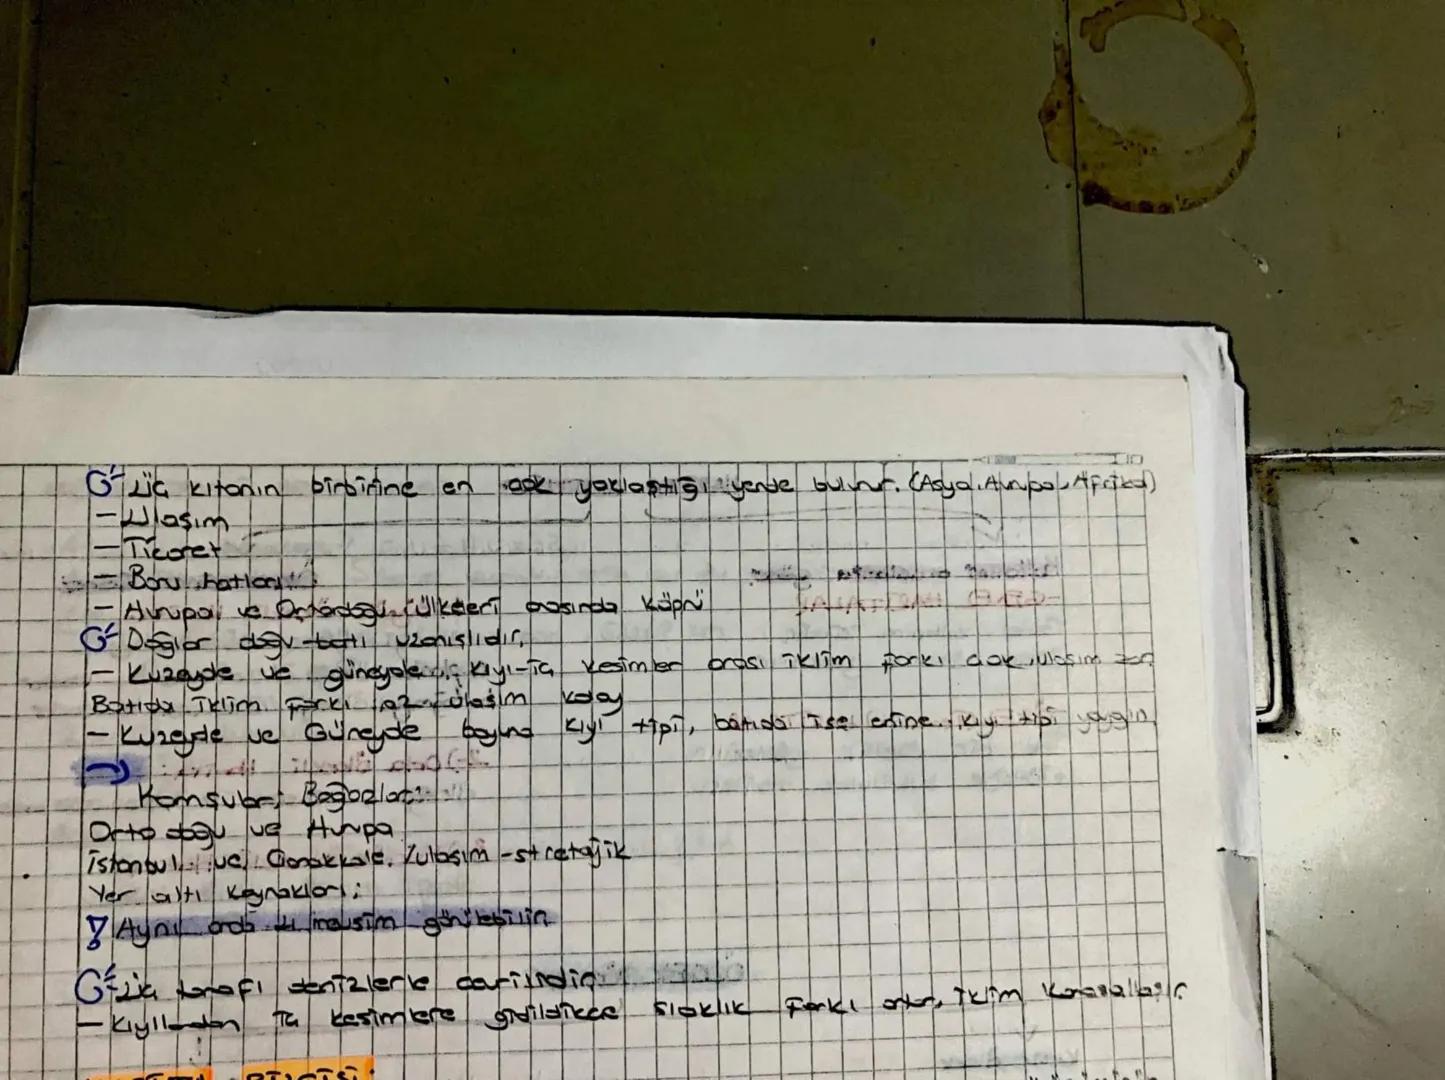 Üç kıtanın birbirine en çok yaklaştığı yerde bulunur. (Asya, Avrupa, Afrika)
- Ulaşım
- Ticaret
- Boru hatları
- Avrupa ve Ortadoğu ülkeleri arasında köprü
Dağlar doğu-batı uzanışlıdır.
- Kuzeyde ve güneyde kıyı-iç kesimler arası iklim farkı çok, ulaşım zor
Batıda iklim farkı az, ulaşım kolay
- Kuzeyde ve Güneyde boyuna kıyı tipi, batıda ise enine kıyı tipi yaygın
Komşuları; Boğazlar:
Orta doğu ve Avrupa
istanbul ve Çanakkale, ulaşım-stratejik
Yer altı kaynakları:
! Aynı anda mevsim görülebilir
Üç tarafı denizlerle çevrilidir
- Kıyılardan iç kesimlere gidildikçe sıcaklık farkı artar, iklim karasallaşır
BİLGİSİ: